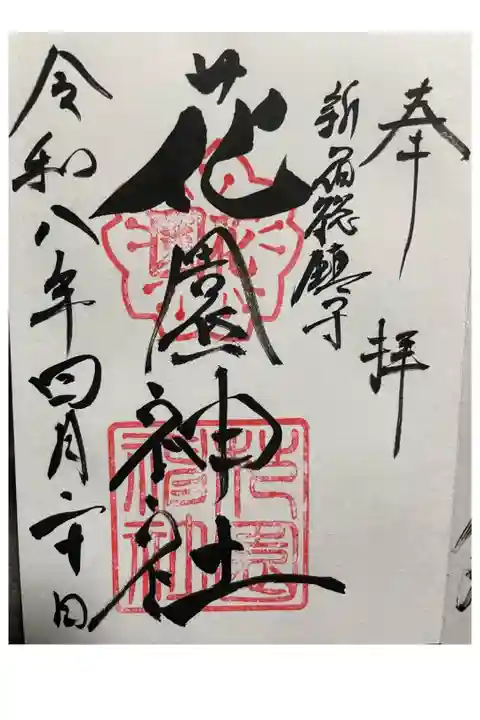 奉拝
新宿総鎮守
花園神社
令和八年四月二十日
花園神社